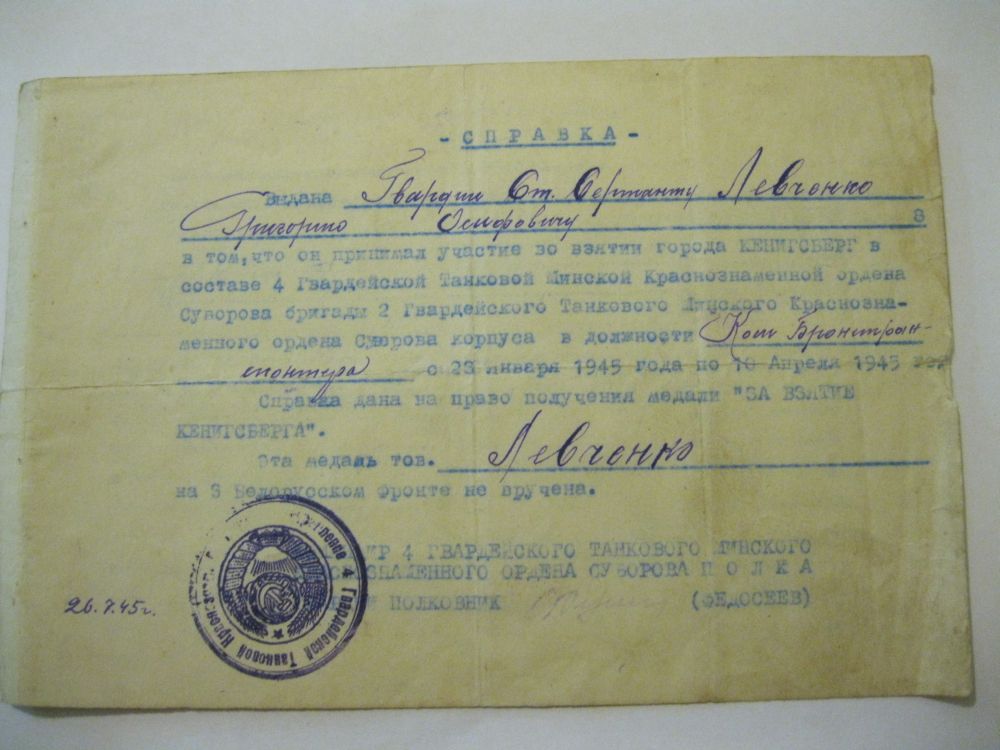 - СПРАВКА -
Выдана Гвардии Ст. Сержанту Левченко
Григорию Осиповичу 8
в том, что он принимал участие во взятии города КЕНИГСБЕРГ в
составе 4 Гвардейской Танковой Минской Краснознаменной ордена
Суворова бригады 2 Гвардейского Танкового Минского Краснозна-
менного ордена Суворова корпуса в должности Ком Бронетран-
спортера с 23 января 1945 года по 10 Апреля 1945
Справка дана на право получения медали "ЗА ВЗЯТИЕ
КЕНИГСБЕРГА".
Эта медаль тов. Левченко
на 3 Белорусском фронте не вручена.
ИР 4 ГВАРДЕЙСКОГО ТАНКОВОГО МИНСКОГО
ОЗНАМЕННОГО ОРДЕНА СУВОРОВА ПОЛКА
ПОЛКОВНИК (ФЕДОСЕЕВ)
26.7.45г.
4 Гвардейской Танковой